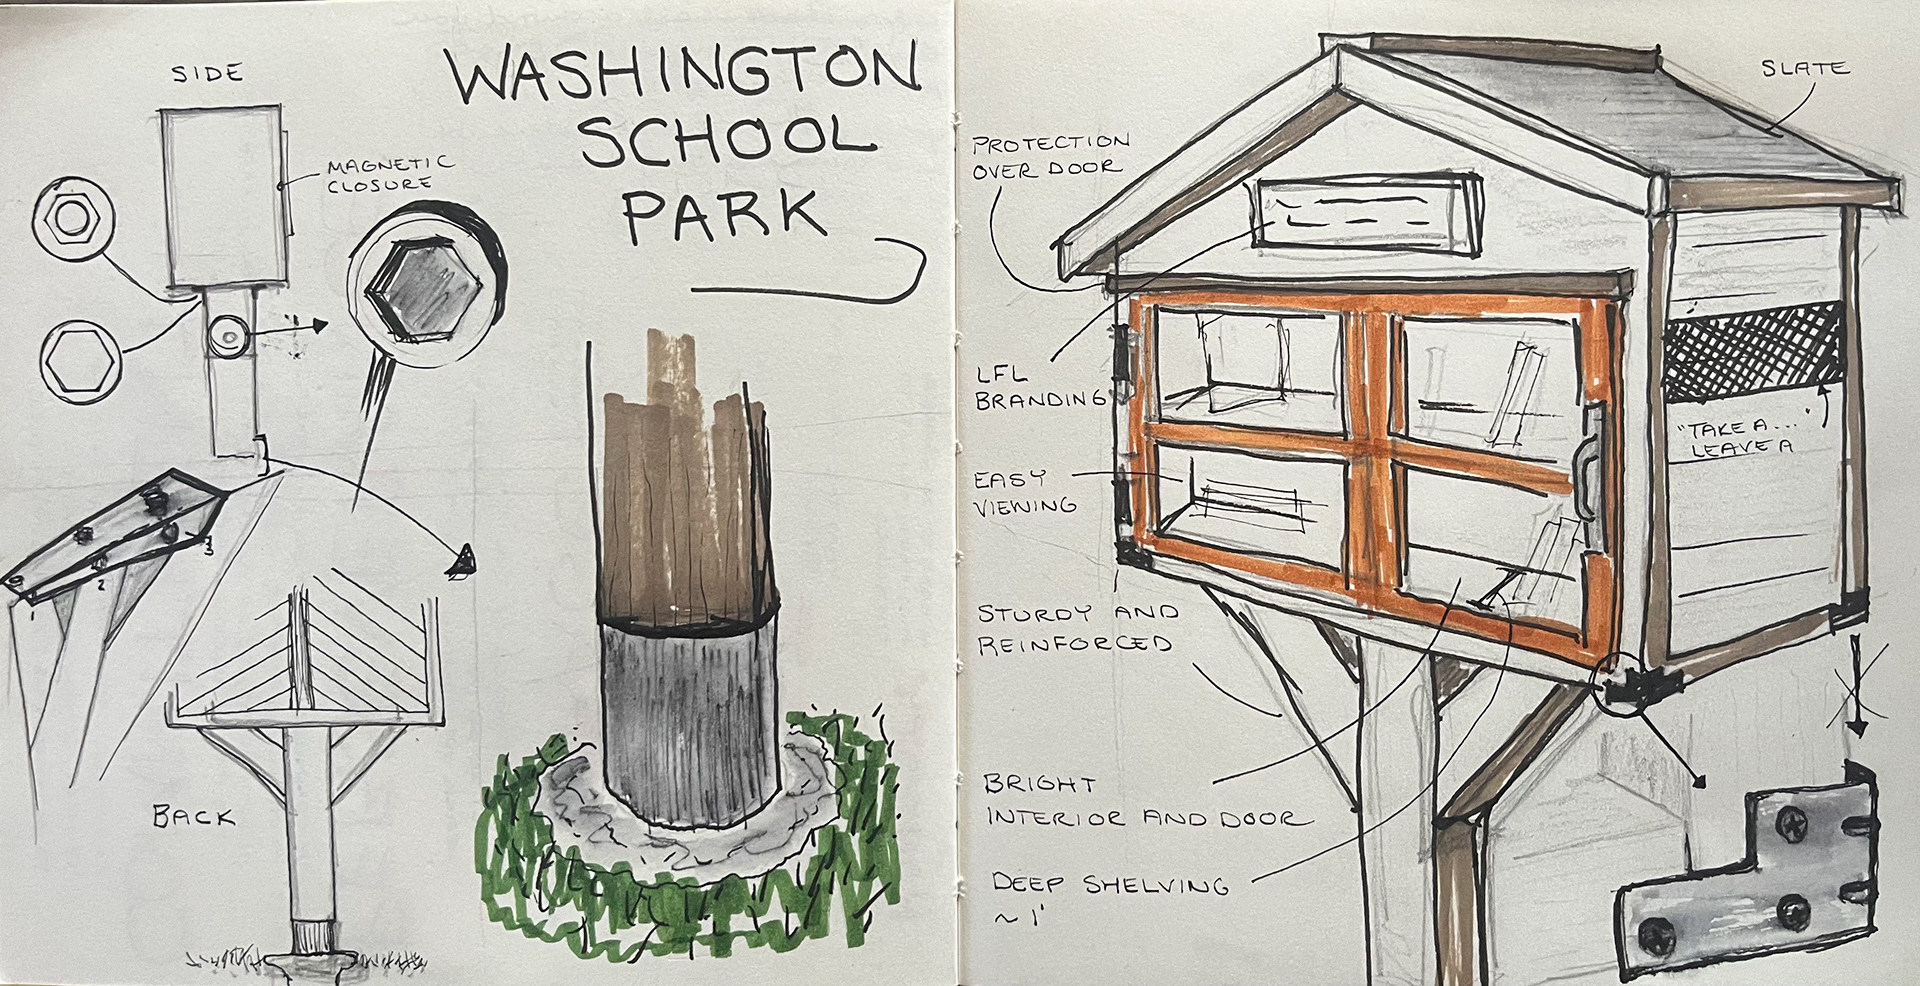 SIDE
MAGNETIC
CLOSURE
WASHINGTON
SCHOOL
PARK
3
2
BACK
SLATE
PROTECTION
OVER DOOR
LFL
BRANDING
EASY
VIEWING
"TAKE A...
LEAVE A "
STURDY AND
REINFORCED
BRIGHT
INTERIOR AND DOOR
DEEP SHELVING
~ 1'